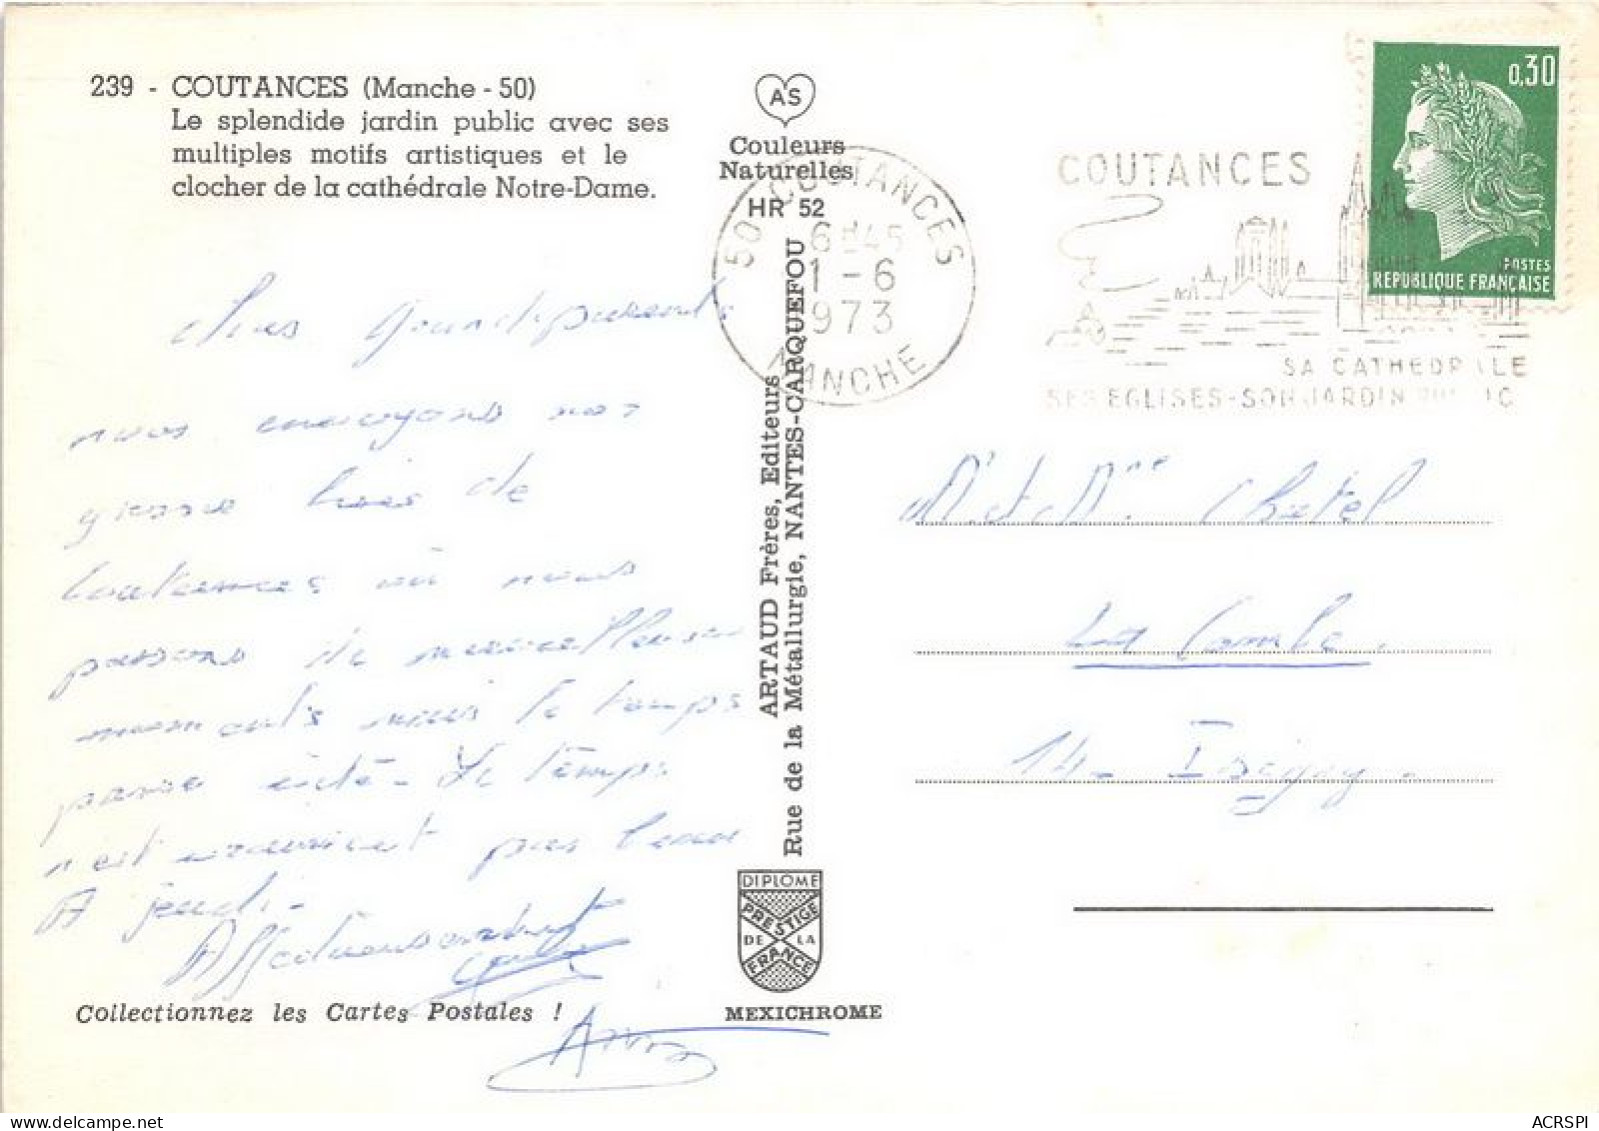 239 - COUTANCES (Manche - 50)
Le splendide jardin public avec ses
multiples motifs artistiques et le
clocher de la cathédrale Notre-Dame.
AS
Couleurs
Naturelles
HR 52
50 COUTANCES
6H45
1 - 6
1973
MANCHE
COUTANCES
SA CATHEDRALE
SES EGLISES-SON JARDIN PUBLIC
0,30
POSTES
REPUBLIQUE FRANÇAISE
Grandsparents
nous envoyons nos
grosses bises de
Coutances où nous
passons de merveilleux
moments mais le temps
passe vite - Le temps
n'est vraiment pas beau
A jeudi -
Affectueusement
Collectionnez les Cartes Postales !
ARTAUD Frères, Editeurs
Rue de la Métallurgie, NANTES-CARQUEFOU
DIPLOME
PRESTIGE
DE LA
FRANCE
MEXICHROME
M. et Mme Chetel
La Combe.
14 - Isigny -
ACRSPI